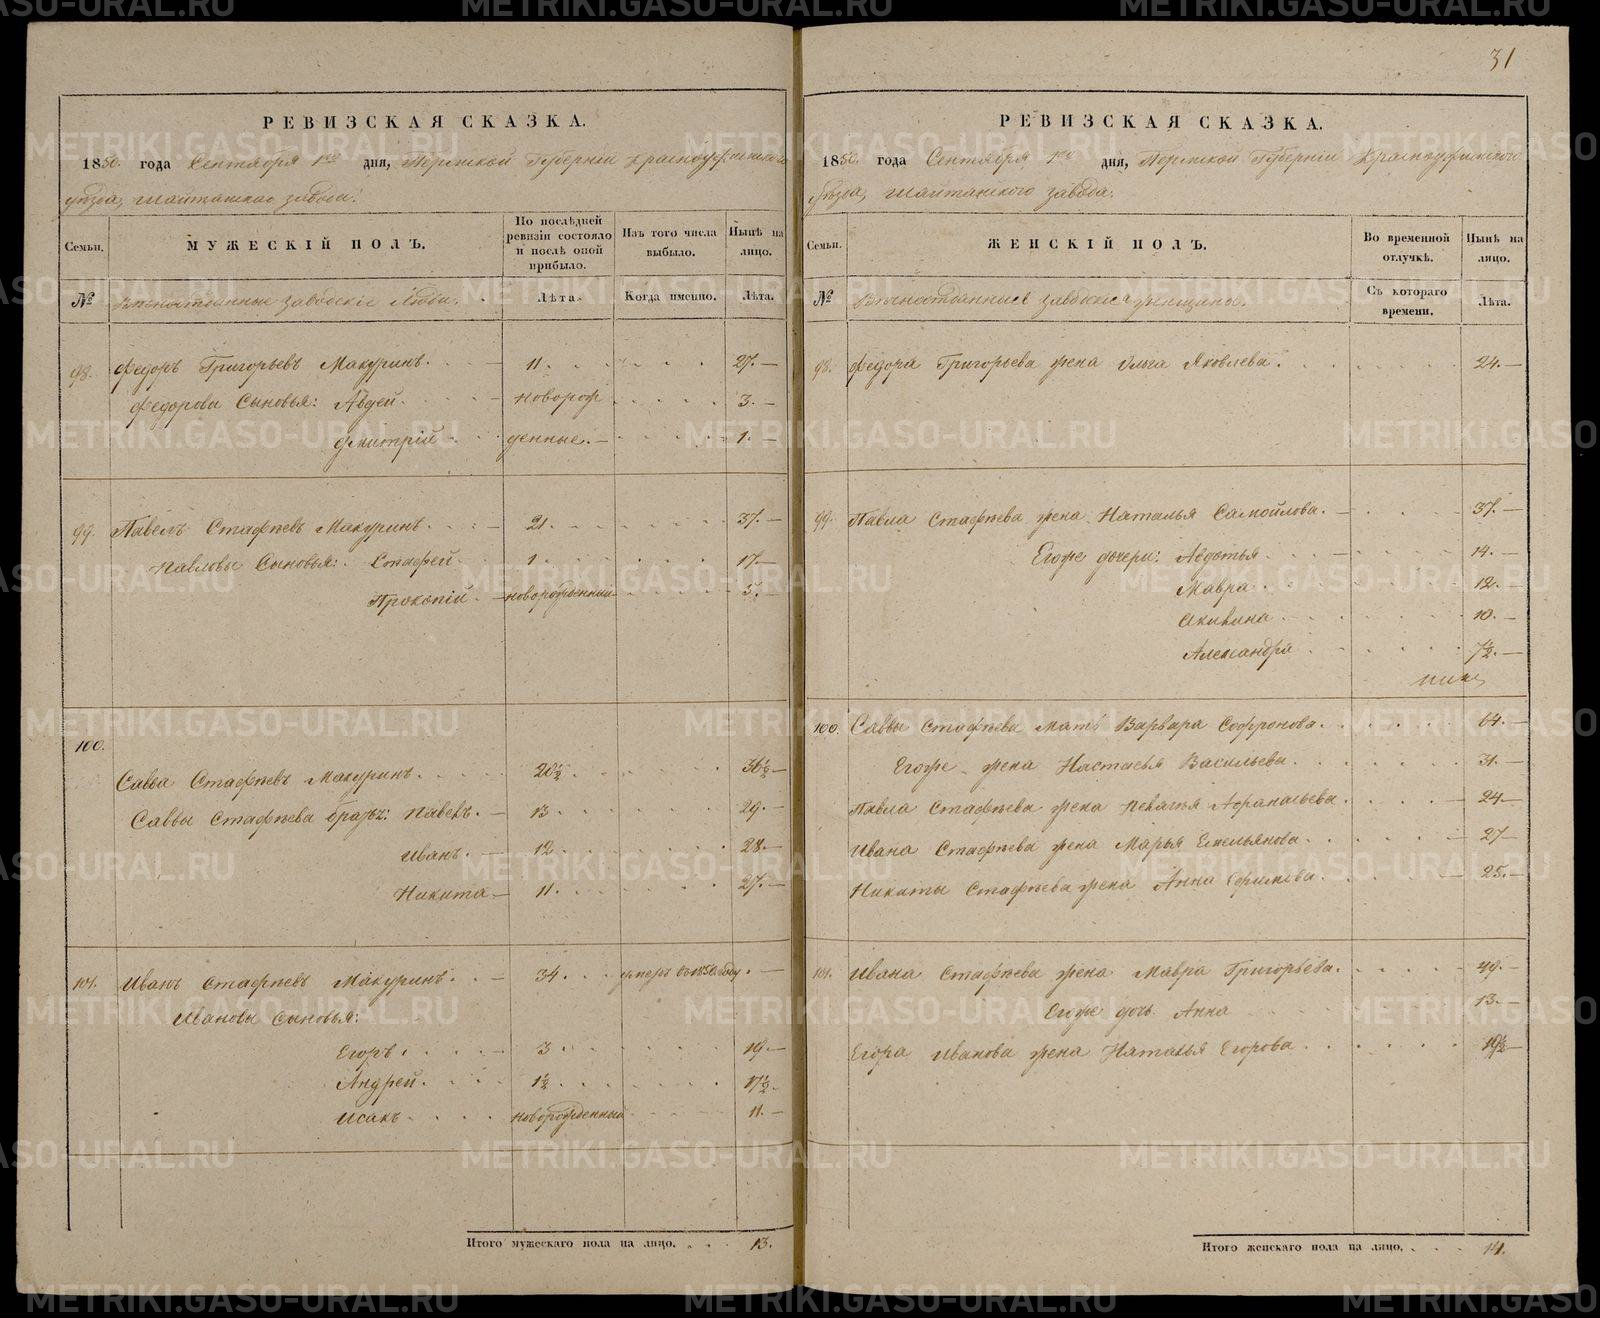 31
РЕВИЗСКАЯ СКАЗКА.
1850. года Сентября 1го дня, Пермской Губерніи Красноуфимскаго
уѣзда, Шайтанскаго завода.
Семьи.
МУЖЕСКІЙ ПОЛЪ.
По послѣдней ревизіи состояло и послѣ оной прибыло.
Изъ того числа выбыло.
Нынѣ на лицо.
№ заводскіе Люди.
Лѣта.
Когда именно.
Лѣта.
98. Федоръ Григорьевъ Макуринъ. 11. 27.
Федоровы Сыновья: Авдей. новорож 3.
Дмитрій денные. 1.
99. Павелъ Стафѣевъ Макуринъ. 21. 37.
Павловы Сыновья: Стафей 1 17
Прокопій новорожденный 5.
100.
Савва Стафѣевъ Макуринъ. 20½ 36½
Саввы Стафѣева братья: Павелъ. 13 29.
Иванъ. 12. 28.
Никита 11. 27.
101. Иванъ Стафѣевъ Макуринъ. 34. умеръ въ 1850 году.
Ивановы Сыновья:
Егоръ. 3 19
Андрей. 1½ 17½
Исакъ новорожденный 11.
Итого мужескаго пола на лицо. 13.
РЕВИЗСКАЯ СКАЗКА.
1850. года Сентября 1го дня, Пермской Губерніи Красноуфимскаго
уѣзда, Шайтанскаго завода.
Семьи.
ЖЕНСКІЙ ПОЛЪ.
Во временной отлучкѣ.
Нынѣ на лицо.
№ заводскіе женщины.
Съ котораго времени.
Лѣта.
98. Федора Григорьева жена Ольга Яковлева. 24.
99. Павла Стафѣева жена Наталья Самойлова. 37.
Егоже дочери: Авдотья 14.
Мавра 12.
Акилина 10.
Александра 7½
100. Саввы Стафѣева Мать Варвара Софронова. 64.
Егоже жена Настасья Васильева. 31.
Павла Стафѣева жена Пелагья Афанасьева. 24
Ивана Стафѣева жена Марья Емельянова. 27
Никиты Стафѣева жена Анна Ефимова. 25.
101. Ивана Стафѣева жена Мавра Григорьева. 49.
Егоже дочь Анна 13.
Егора Иванова жена Наталья Егорова. 19½
Итого женскаго пола на лицо. 14.
METRIKI.GASO-URAL.RU